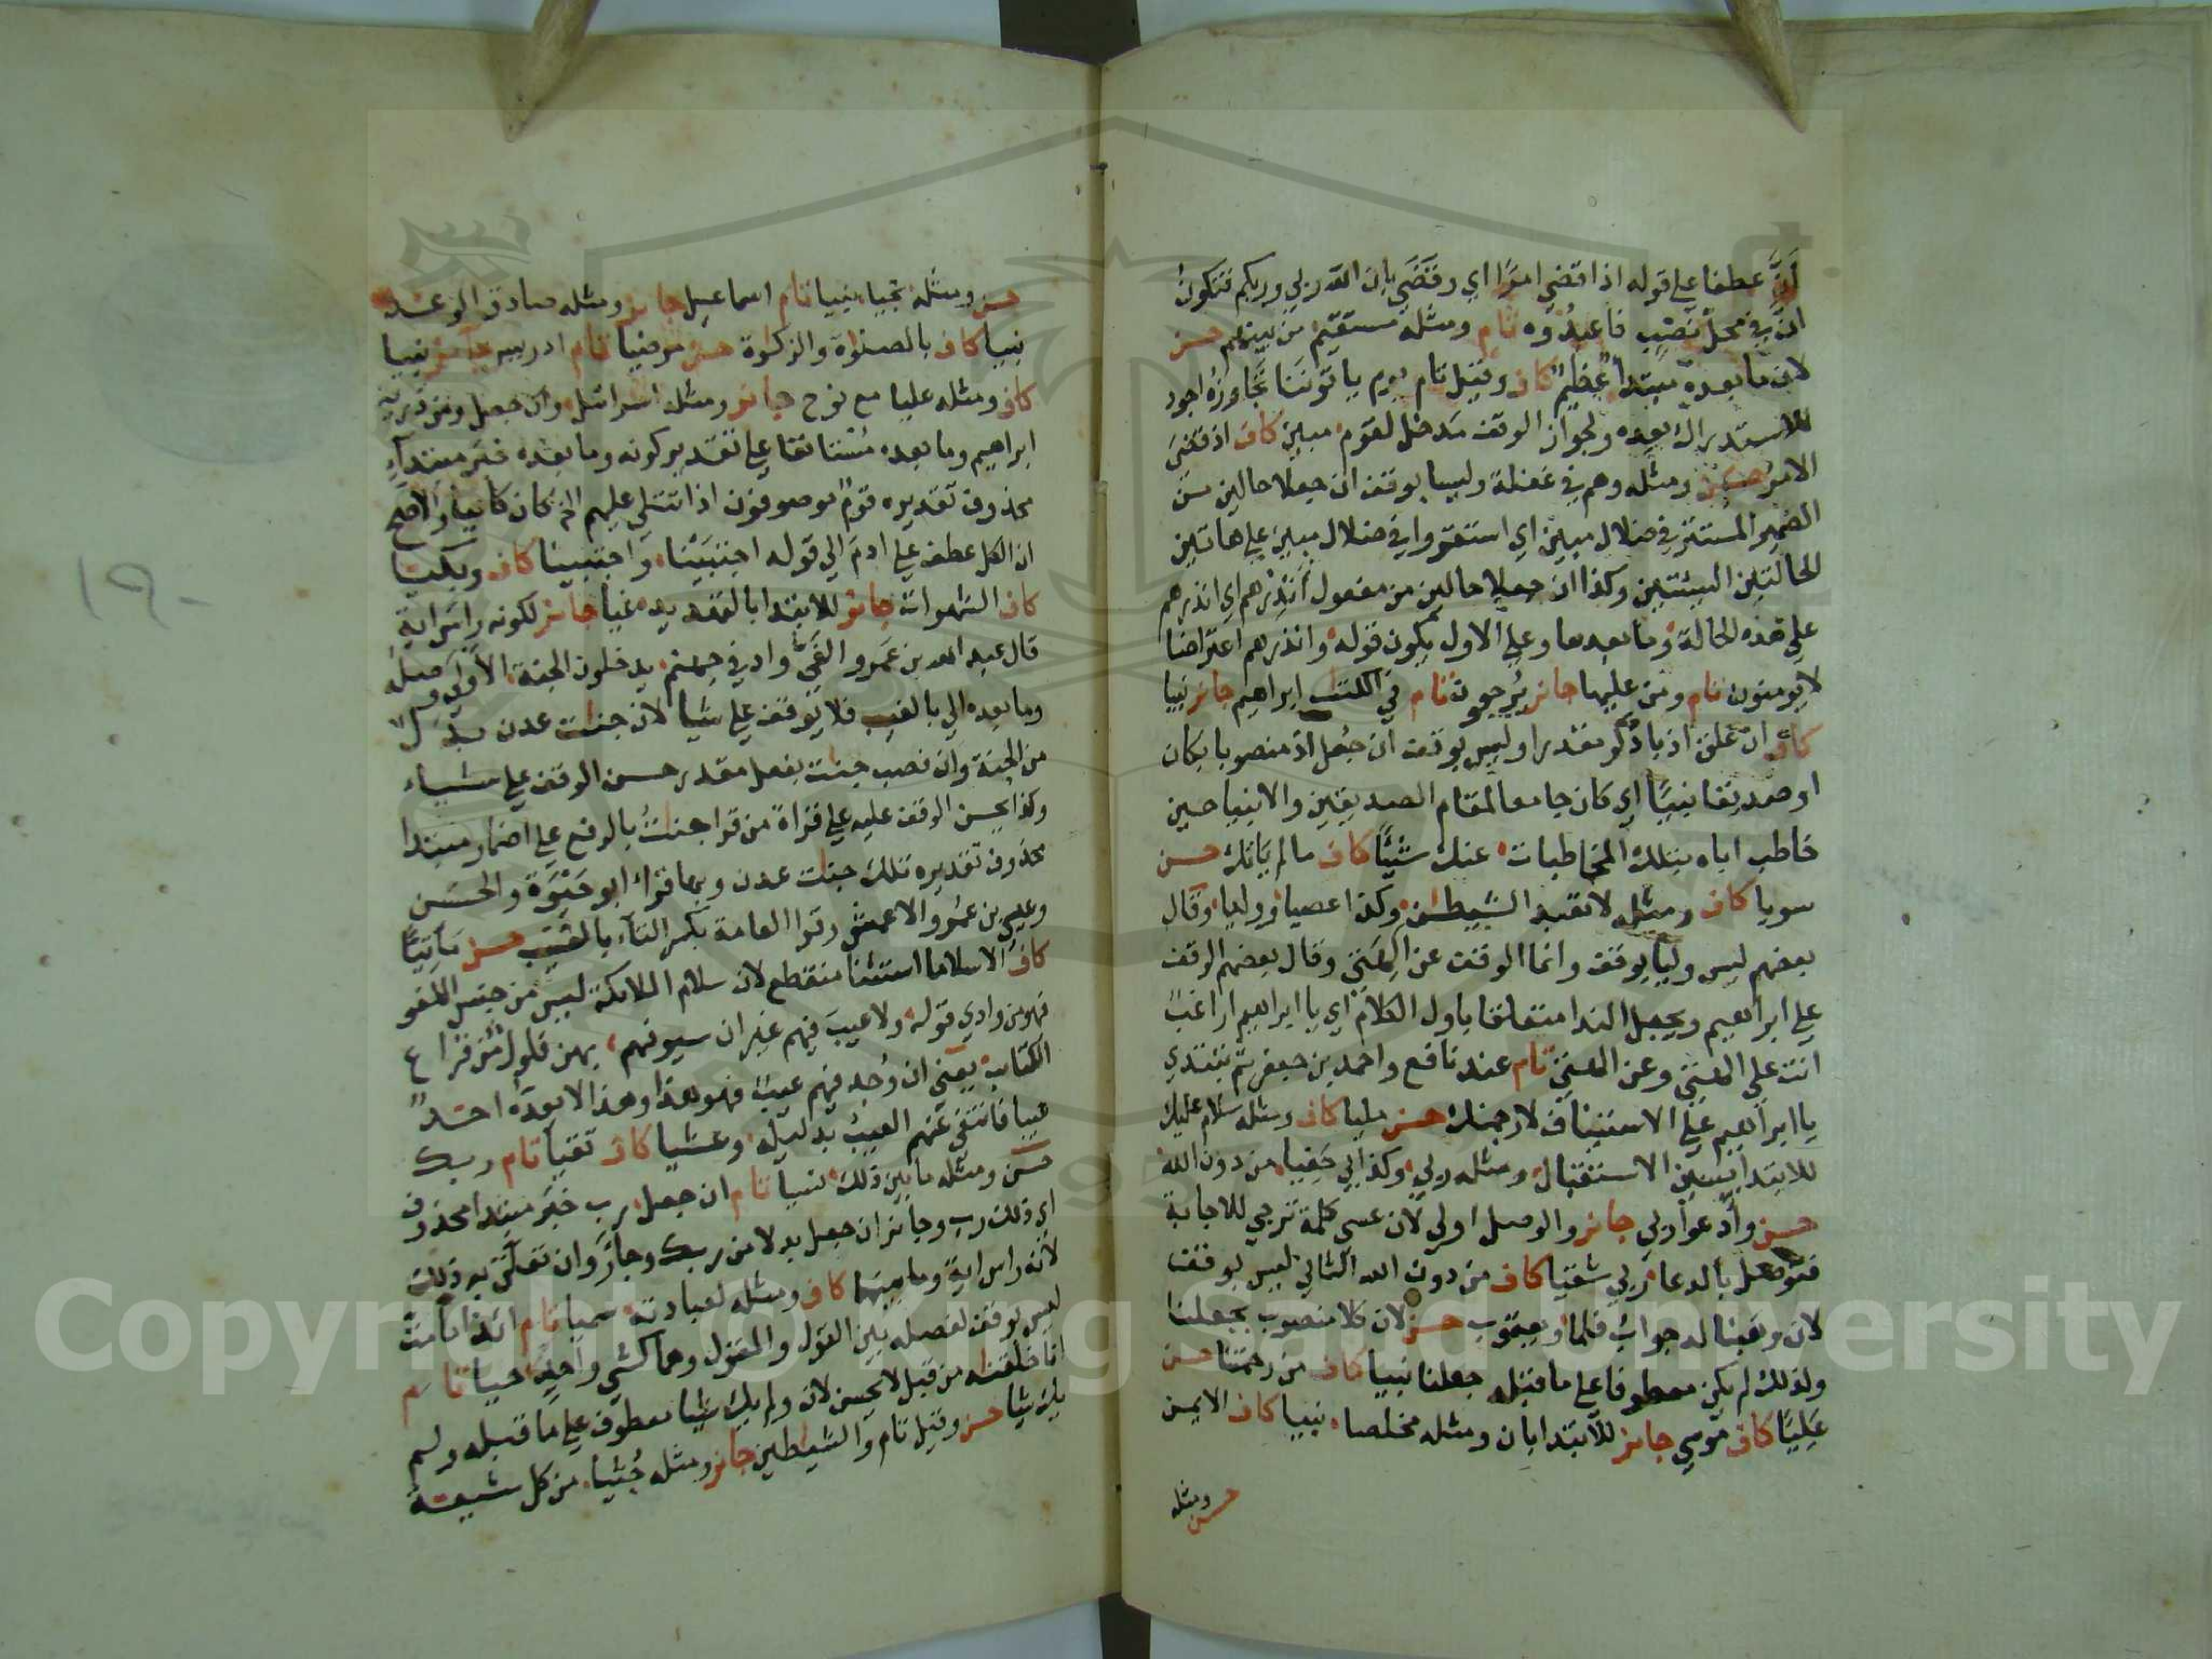 أنّ عطفا علي قوله اذا قضي امرًا اي وقَضَي بان الله ربي وربكم فتكون
انّ في محل نصْبِ فاعبدُوه تام ومثله مستقيم من بينهم حسن
لان ما بعده مبتدأ عظيم كاف وقيل تام يوم ياتوننا تجاوزُه اجود
للاستدراك بعده ولجواز الوقف مدخل لقوم مبين كاف اذ قضي
الامر حسن ومثله وهم في غفلة وليسا بوقف ان جعلا حالين من
الضمير المستتر في ضلال مبين اي استقروا في ضلال مبين علي هاتين
الحالتين السيئتين وكذا ان جعلا حالين من مفعول انذِرْهم اي انذرهم
علي هذه الحالة وما بعدها وعلي الاول يكون قوله وانذرهم اعتراضا
لا يومنون تام ومن عليها جائز يُرجعون تام في الكتب ابراهيم جائز نبيا
كاف ان علق اذ باذكر مقدرا وليس بوقف ان جُعل اذ منصوبا بكان
او صديقا نبيّا اي كان جامعا لمقام الصديقين والانبيا حين
خاطب اباه بتلك المخاطبات عنك شيئًا كاف ما لم يَاتك حسن
سويا كاف ومثله لا تعبد الشيطن وكذا عصيا ووليا وقال
بعضهم ليس وليا بوقف وانما الوقف عن الهتي وقال بعضهم الوقف
علي ابراهيم ويجعل الندا متعلقا باول الكلام اي يا ابراهيم اراغب
انت علي الهتي وعن الهتي تام عند نافع واحمد بن جعفر ثم يبتدي
يا ابراهيم علي الاستيناف لارجمنك حسن مليا كاف ومثله سلام عليك
للابتدا بسين الاستقبال ومثله ربي وكذا بي حَفِيا من دون الله
حسن وأدعوا ربي جائز والوصل اولي لان عسي كلمة ترجي للاجابة
فتوصل بالدعا ربي شقيا كاف من دون الله الثاني ليس بوقف
لان وهبنا له جواب فلما ويعقوب حسن لان كلا منصوب بجعلنا
ولذلك لم يكن معطوفا علي ما قبله جعلنا نبيا كاف من رحمتنا حسن
عَلِيّا كاف موسي جائز للابتدا بان ومثله مخلصا نبيا كاف الايمن
حسن ومثله
حسن ومثله نجيا نبيا تام اسماعيل جائز ومثله صادق الوعد
نبيا كاف بالصلوة والزكوة حسن مرضيا تام ادريس جائز نبيا
كاف ومثله عليا مع نوح جائز ومثله اسرائيل وان جعل ومن ذرية
ابراهيم وما بعده مُستانفا علي تقدير كونه وما بعده خبر مبتدآء
محذوف تقديره قومٌ موصوفون اذا تتلي عليهم الخ كان كافيا والاصح
ان الكل عطف علي ادم الي قوله اجتبَيْنا واجتبينا كاف وبكيا
كاف الشهوات جائز للابتدا بالتهديد غيا جائز لكونه راس اية
قال عبد الله بن عَمرو الغَيُّ واد في جهنم يدخلون الجنة الاولي وصله
وما بعده الي بالغيب فلا يوقف علي شيا لان جنات عدن بدلٌ
من الجنة وان نصب جنت بفعل مقدر حسن الوقف علي شيا
وكذا يحسن الوقف عليه علي قراة من قرا جنتُ بالرفع علي اضمار مبتدا
محذوف تقديره تلك جنات عدن وبها قرا ابو حَيْوَة والحسن
وعيسي بن عمر والاعمش وقرا العامة بكسر التاء بالغيب حسن مَأتِيّا
كاف الا سلاما استثنا منقطع لان سلام الملائكة ليس من جنس اللغو
فهو من وادي قوله ولا عيب فيهم غير ان سيوفهم بهن فلول من قراع
الكتايب يعني ان وُجد فيهم عيب فهو هذا وهذا لا يعدّه احد
عيبا فانتفي عنهم العيب بدليله وعشيا كاف تقيا تام ربك
حسن ومثله ما بين ذلك نسيا تام ان جعل رب خبر مبتدا محذوف
اي ذلك رب وجائز ان جعل بدلا من ربك وجائز وان تعلق به ذلك
لانه راس اية وما بينهما كاف ومثله لعبادته سميا تام ائذا ما مت
ليس بوقف لفصله بين القول والمقول وهما كشي واحد حيا تام
انا خلقنه من قبل لا يحسن لان ولم يك شيا معطوف علي ما قبله ولم
يك شيا حسن وقيل تام والشيطين جائز ومثله جُثيا من كل شيعة
١٩٠